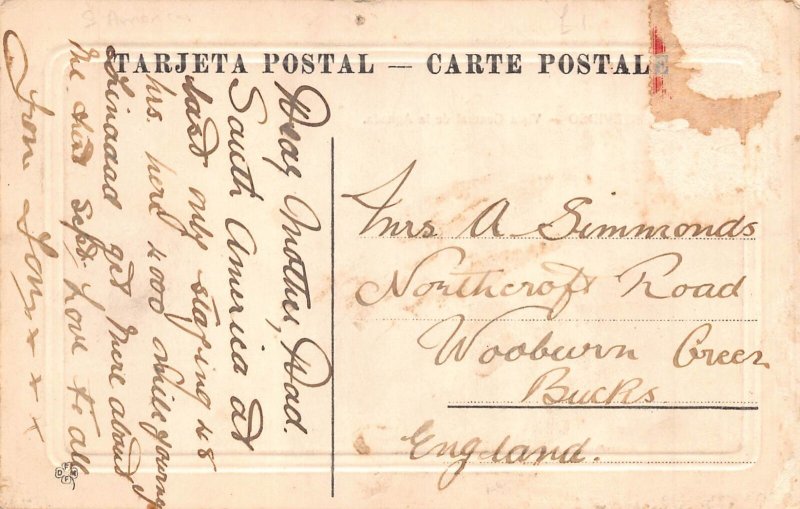 S America
£1
TARJETA POSTAL — CARTE POSTALE
Dear Mother, Dad.
South America at
last only staying 48
hrs. here 4000 mile journey
Trinadad get there about
the 23rd Sept Love to all
from Tom x x x
Mrs A Simmonds
Northcroft Road
Wooburn Green
Bucks
England.